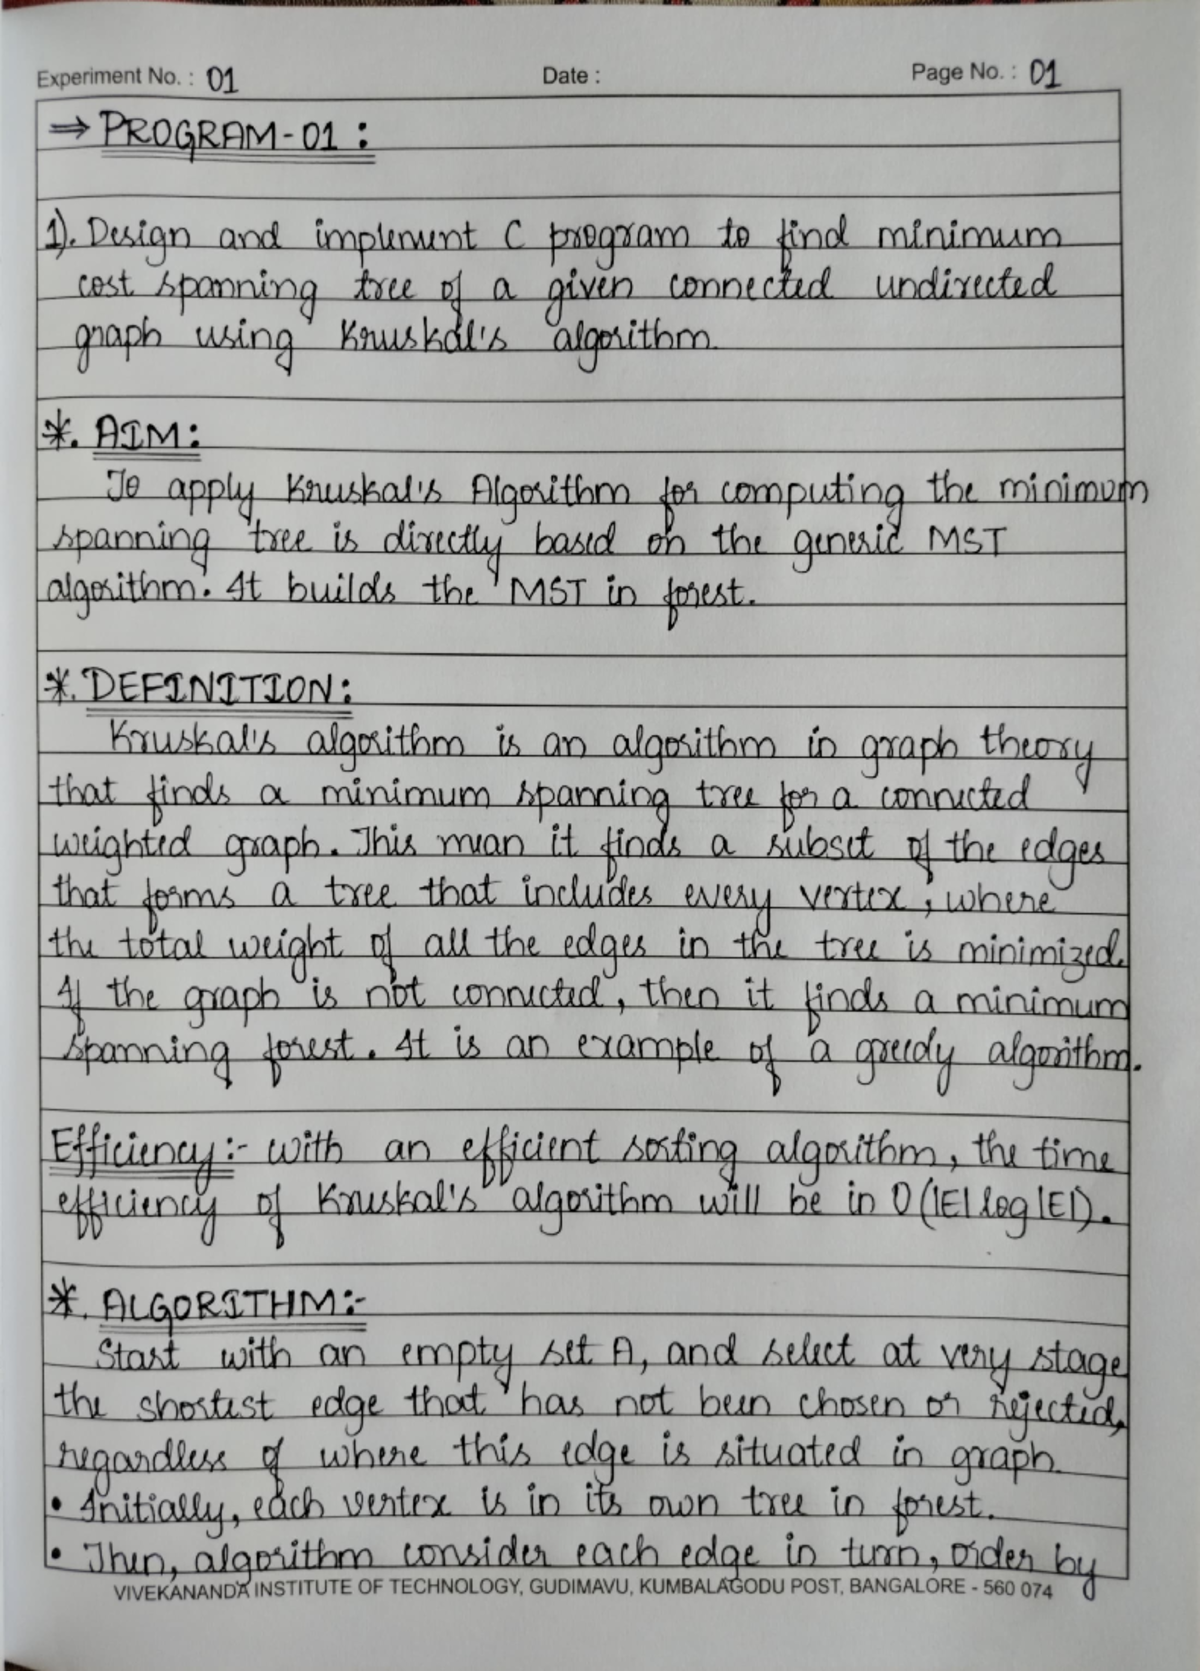 Experiment No. : 01 Date : Page No. : 01
⇒ PROGRAM-01 :
1). Design and implement C program to find minimum
cost spanning tree of a given connected undirected
graph using Kruskal's algorithm.
*. AIM:
To apply Kruskal's Algorithm for computing the minimum
spanning tree is directly based on the generic MST
algorithm. It builds the MST in forest.
*. DEFINITION:
Kruskal's algorithm is an algorithm in graph theory
that finds a minimum spanning tree for a connected
weighted graph. This mean it finds a subset of the edges
that forms a tree that includes every vertex, where
the total weight of all the edges in the tree is minimized.
If the graph is not connected, then it finds a minimum
spanning forest. It is an example of a greedy algorithm.
Efficiency:- with an efficient sorting algorithm, the time
efficiency of Kruskal's algorithm will be in O(|E|log|E|).
*. ALGORITHM:-
Start with an empty set A, and select at very stage
the shortest edge that has not been chosen or rejected,
regardless of where this edge is situated in graph.
• Initially, each vertex is in its own tree in forest.
• Then, algorithm consider each edge in turn, order by
VIVEKANANDA INSTITUTE OF TECHNOLOGY, GUDIMAVU, KUMBALAGODU POST, BANGALORE - 560 074